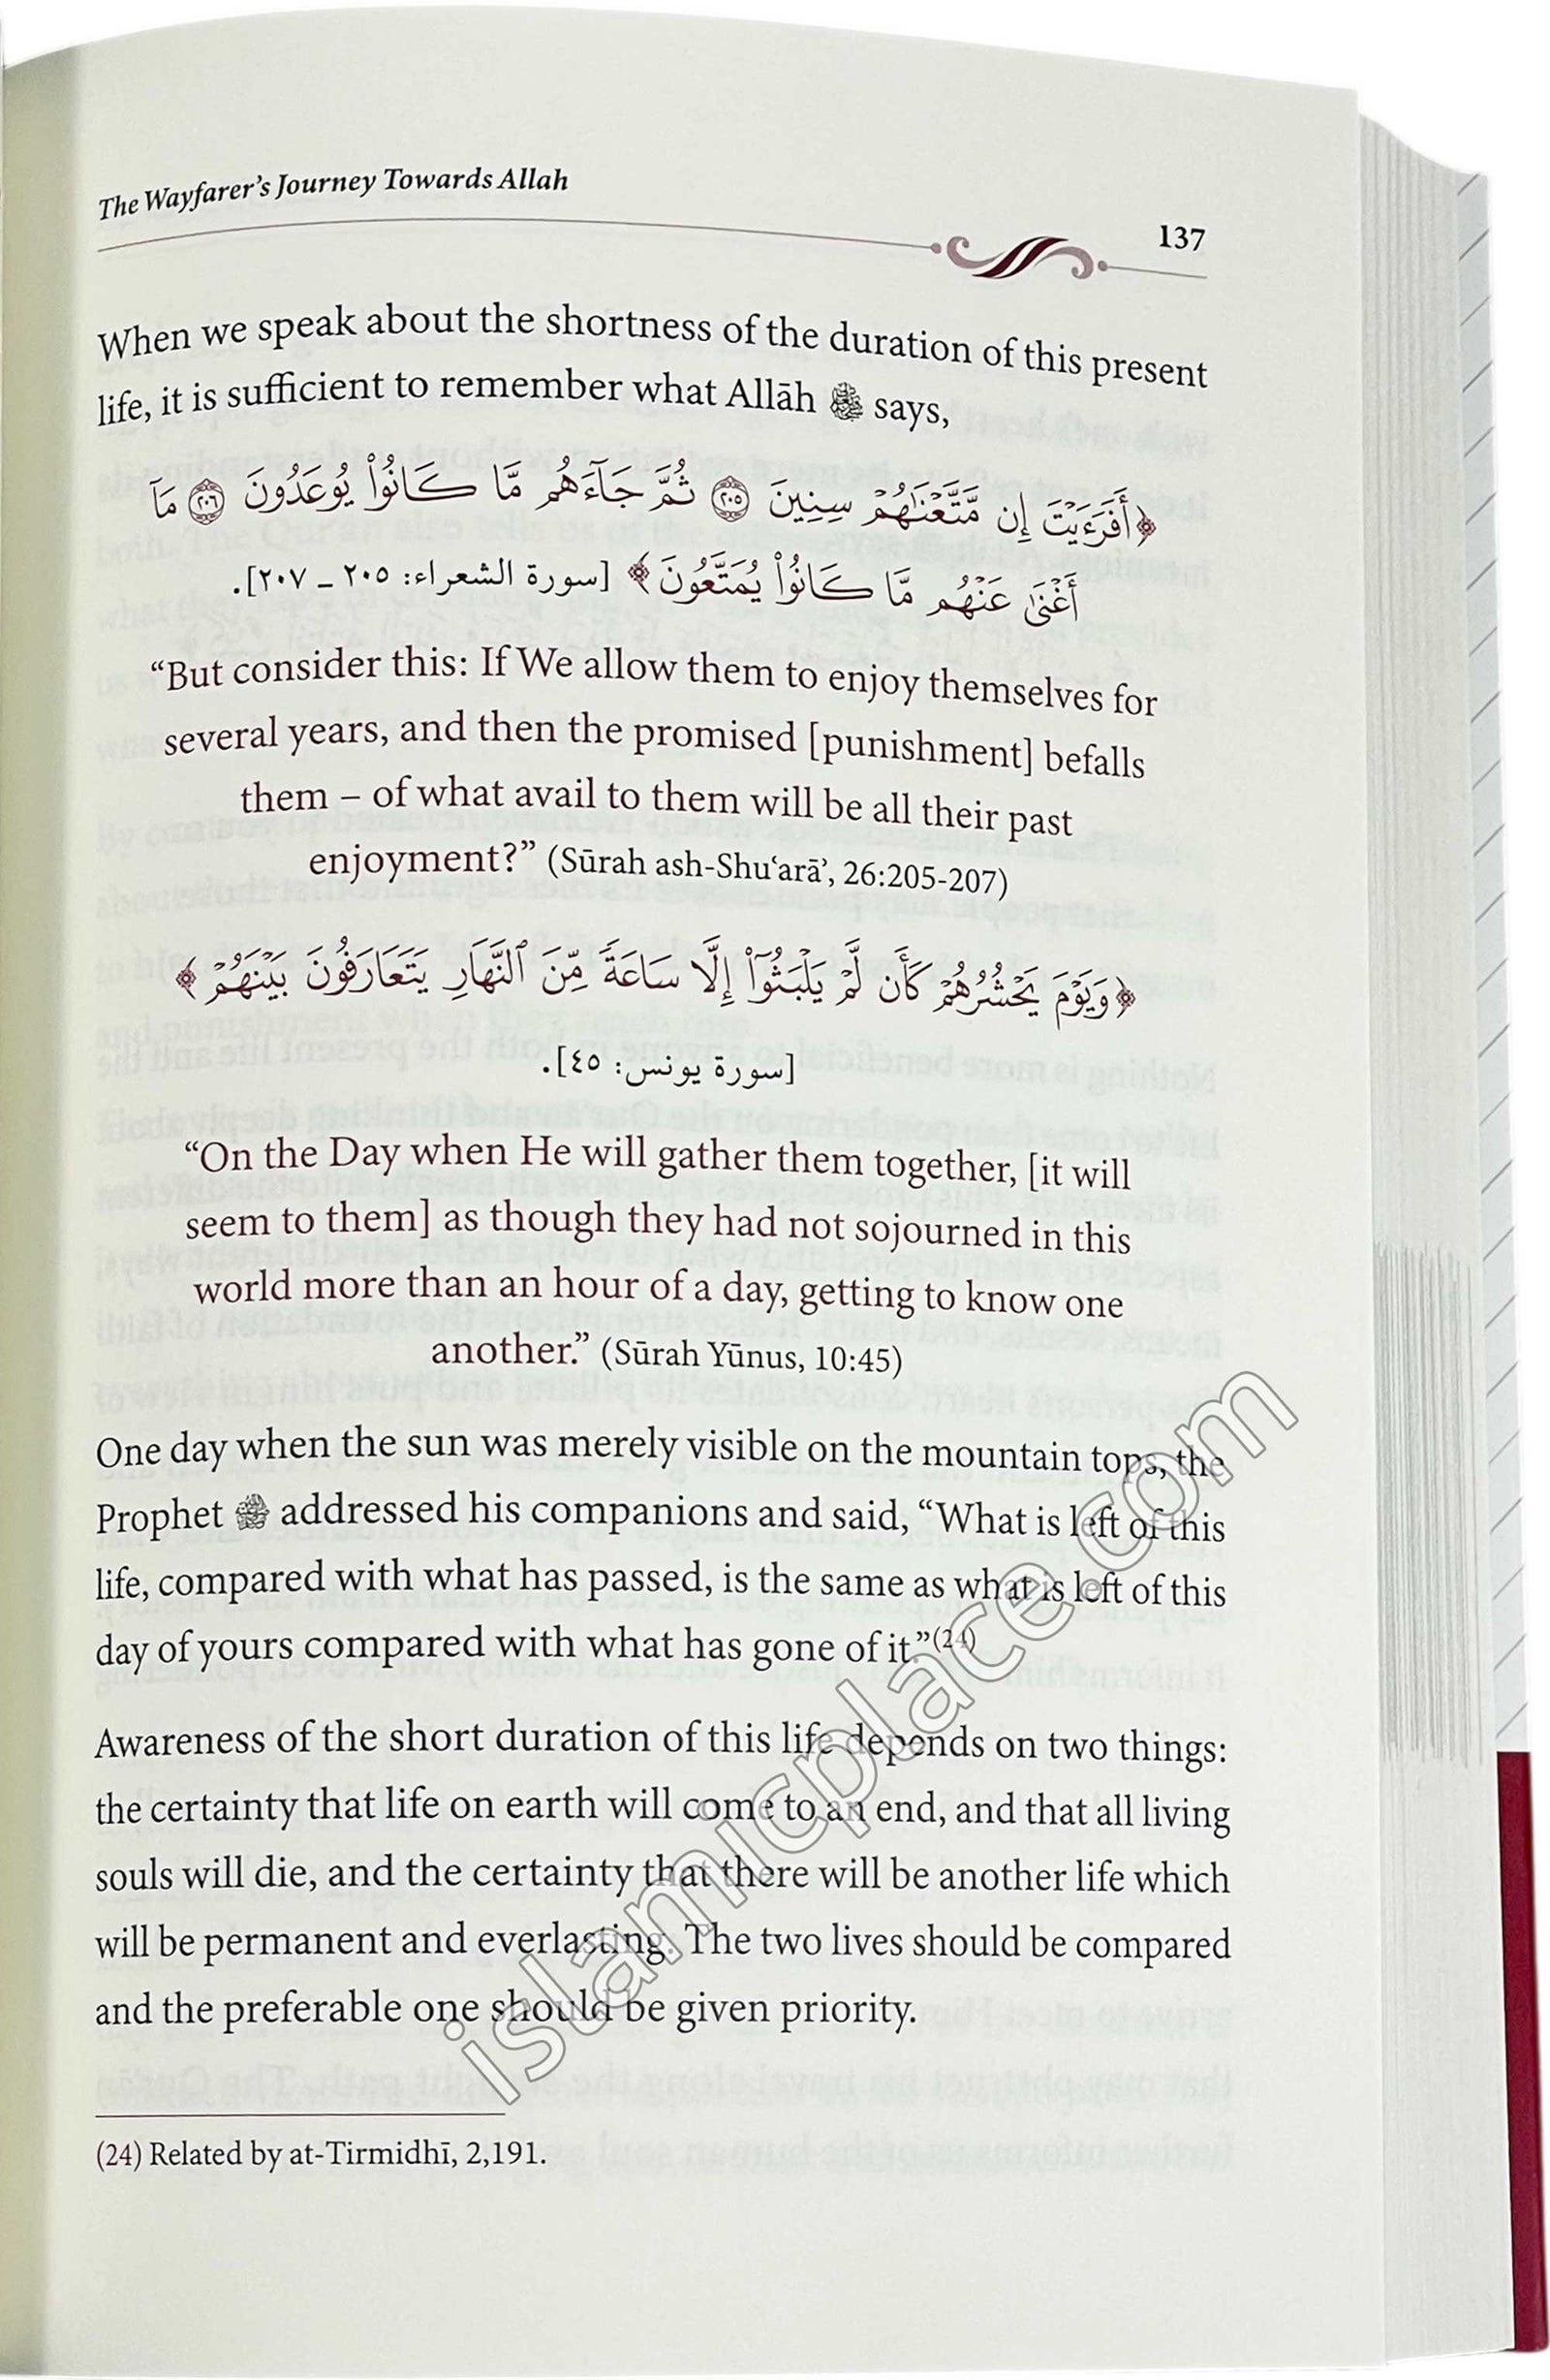 The Wayfarer’s Journey Towards Allah
137
When we speak about the shortness of the duration of this present
life, it is sufficient to remember what Allāh ﷻ says,
﴿أَفَرَءَيْتَ إِن مَّتَّعْنَٰهُمْ سِنِينَ ٢٠٥ ثُمَّ جَآءَهُم مَّا كَانُوا۟ يُوعَدُونَ ٢٠٦ مَآ
أَغْنَىٰ عَنْهُم مَّا كَانُوا۟ يُمَتَّعُونَ﴾ [سورة الشعراء: ٢٠٥ – ٢٠٧].
“But consider this: If We allow them to enjoy themselves for
several years, and then the promised [punishment] befalls
them – of what avail to them will be all their past
enjoyment?” (Sūrah ash-Shuʿarāʾ, 26:205-207)
﴿وَيَوْمَ يَحْشُرُهُمْ كَأَن لَّمْ يَلْبَثُوٓا۟ إِلَّا سَاعَةً مِّنَ ٱلنَّهَارِ يَتَعَارَفُونَ بَيْنَهُمْ﴾
[سورة يونس: ٤٥].
“On the Day when He will gather them together, [it will
seem to them] as though they had not sojourned in this
world more than an hour of a day, getting to know one
another.” (Sūrah Yūnus, 10:45)
One day when the sun was merely visible on the mountain tops, the
Prophet ﷺ addressed his companions and said, “What is left of this
life, compared with what has passed, is the same as what is left of this
day of yours compared with what has gone of it.”(24)
Awareness of the short duration of this life depends on two things:
the certainty that life on earth will come to an end, and that all living
souls will die, and the certainty that there will be another life which
will be permanent and everlasting. The two lives should be compared
and the preferable one should be given priority.
(24) Related by at-Tirmidhī, 2,191.
islamicplace.com